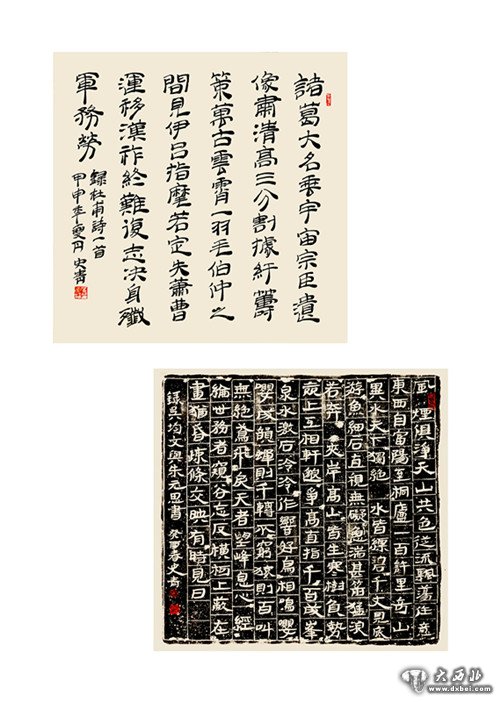 諸葛大名垂宇宙宗臣遺
像肅清高三分割據紆籌
策萬古雲霄一羽毛伯仲之
間見伊呂指麾若定失蕭曹
運移漢祚終難復志決身殲
軍務勞
錄杜甫詩一首
甲申年夏月 史
風煙俱淨天山共色從流飄蕩任意
東西自富陽至桐廬一百許里奇山
異水天下獨絕 水皆縹碧千丈見底
游魚細石直視無礙急湍甚箭猛浪
若奔 夾岸高山皆生寒樹負勢
競上互相軒邈爭高直指千百成峯
泉水激石泠泠作響好鳥相鳴嚶
嚶成韻蟬則千轉不窮猿則百叫
無絕鳶飛戾天者望峰息心經
綸世務者窺谷忘反橫柯上蔽在
晝猶昏疎條交映有時見日
錄吳均文與朱元思書 春史
大西北
www.dxbei.com